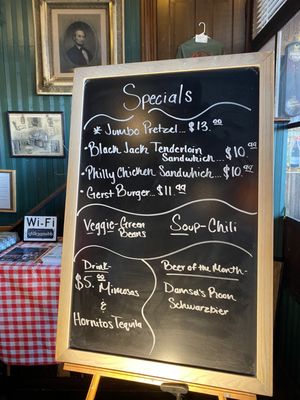 Specials
* Jumbo Pretzel... $13.00
• Black Jack Tenderloin
Sandwhich.... $10.99
• Philly Chicken Sandwhich... $10.99
• Gerst Burger... $11.99
Veggie-Green
Beans
Soup-Chili
Drink-
$5.00 Mimosas
&
Hornitos Tequila
Beer of the Month-
Schwarzbier
Wi-Fi